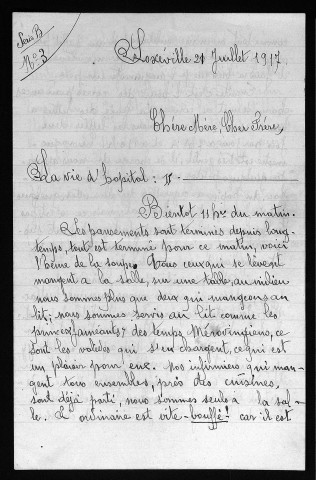 Série B
N° 3
Loxéville 21 Juillet 1917.
Chère Mère, Cher Frère,
La vie d'hopital : II
Bientot 11 hrs du matin.
Les pansements sont terminés depuis long-
temps, tout est terminé pour ce matin, voici
l'heure de la soupe. Tous ceux qui se lèvent
mangent à la salle, sur une table, au milieu
nous sommes plus que deux qui mangeons au
lit; nous sommes servis au lit comme les
princes fainéants des temps Mérovingiens, ce
sont les valides qui s'en chargent, ce qui est
un plaisir pour eux. Nos infirmiers qui man-
gent tous ensembles, près des cuisines,
sont déjà parti, nous sommes seuls à la sal-
le. L'ordinaire est vite bouffé! car il est